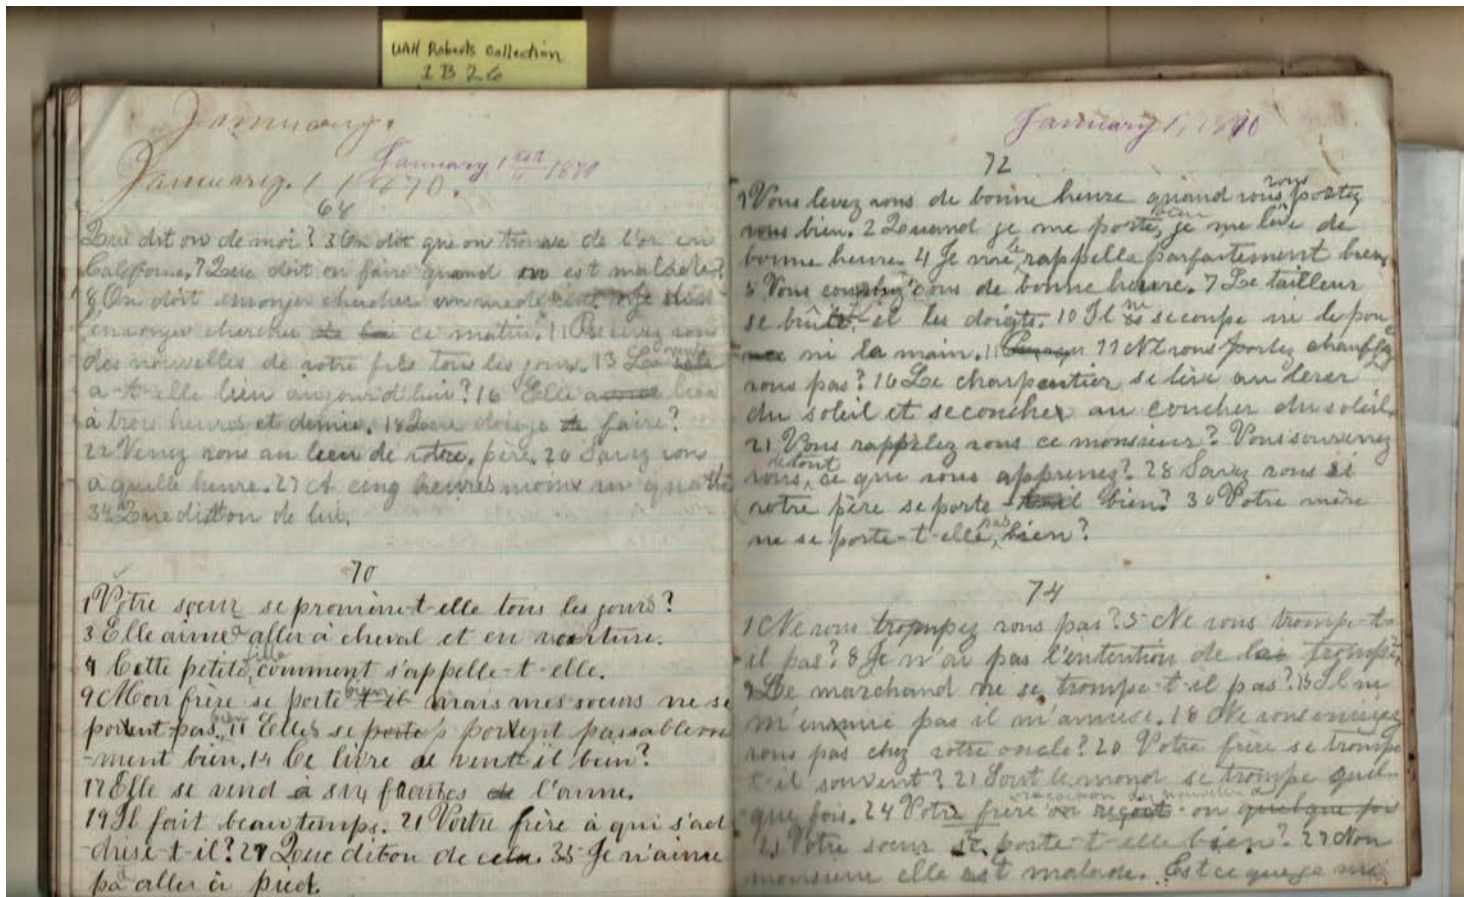 UAH Roberts Collection
1 B 26
January.
January 1st 1870
January. 1 1870.
68
Que dit on de moi? 3 On dit que on trouve de l'or en
Californe. 7 Que doit on faire quand on est malade?
8 On doit envoyer chercher
envoyer chercher ce matin. 11 Recevez vous
des nouvelles de votre fils tous les jours. 13 La
a-t-elle bien aujourd'hui? 16 Elle
à trois heures et demie. 18 Que doisje faire?
22 Venez vous au lieu de votre père. 20 Savez vous
a quelle heure. 27 A cinq heures moins un quatre
34 Que dit on de lui.
70
1 Votre sœur se promène-t-elle tous les jours?
3 Elle aime aller à cheval et en voiture.
4 Cette petite fille comment s'appelle-t-elle.
9 Mon frère se porte bien mais mes sœurs ne se
portent pas bien 11 Elles se portent passable
-ment bien. 14 Ce livre se vent il bien?
17 Elle se vend à six francs de l'aune.
19 Il fait beau temps. 21 Votre frère à qui s'ad
-drese-t-il? 27 Que diton de cela. 35 Je n'aime
pa aller à pied.
January 1, 1870
72
1 Vous levez vous de bonne heure quand vous vous portez
vous bien. 2 Quand je me porte bien je me lève de
bonne heure. 4 Je me le rappelle parfaitement bien
5 Vous couchez vous de bonne heure. 7 Le tailleur
se brûle-t-il les doigts. 10 Il ne se coupe ni le pou
ce ni la main. 11 NE vous portez chauffez
vous pas? 16 Le charpentier se lève au lever
du soleil et se couche au coucher du soleil.
21 Vous rappelez vous ce monsieur? Vous souvenez
vous de tout ce que vous apprenez? 28 Savez vous si
votre père se porte bien? 30 Votre mère
ne se porte-t-elle pas bien?
74
1 Ne vous trompez vous pas? 5 Ne vous trompe-t-
il pas? 8 Je n'ai pas l'entention de tromper
9 Le marchand ne se trompe-t-il pas? 15 Il ne
m'ennuie pas il m'amuse. 18 Ne vous ennuyez
vous pas chez votre oncle? 20 Votre frère se trompe
t-il souvent? 21 Tout le mond se trompe quel-
que fois. 24 Votre frère reçoit-on quelque fois
25 Votre sœur se porte-t-elle bien? 27 Non
monsieur elle est malade. Est ce que je me